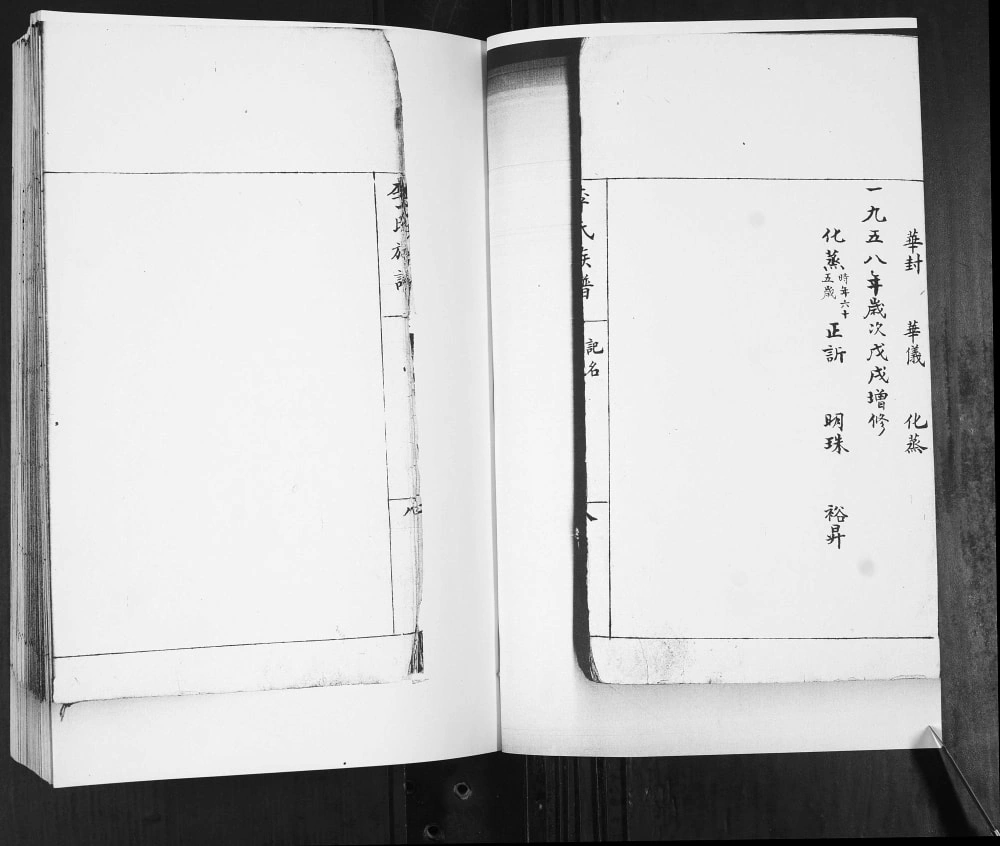 華封 華儀 化蒸
一九五八年歲次戊戌增修
化蒸時年六十五歲 正訢 明珠 裕昇
李氏族譜
記名
八
李氏族譜